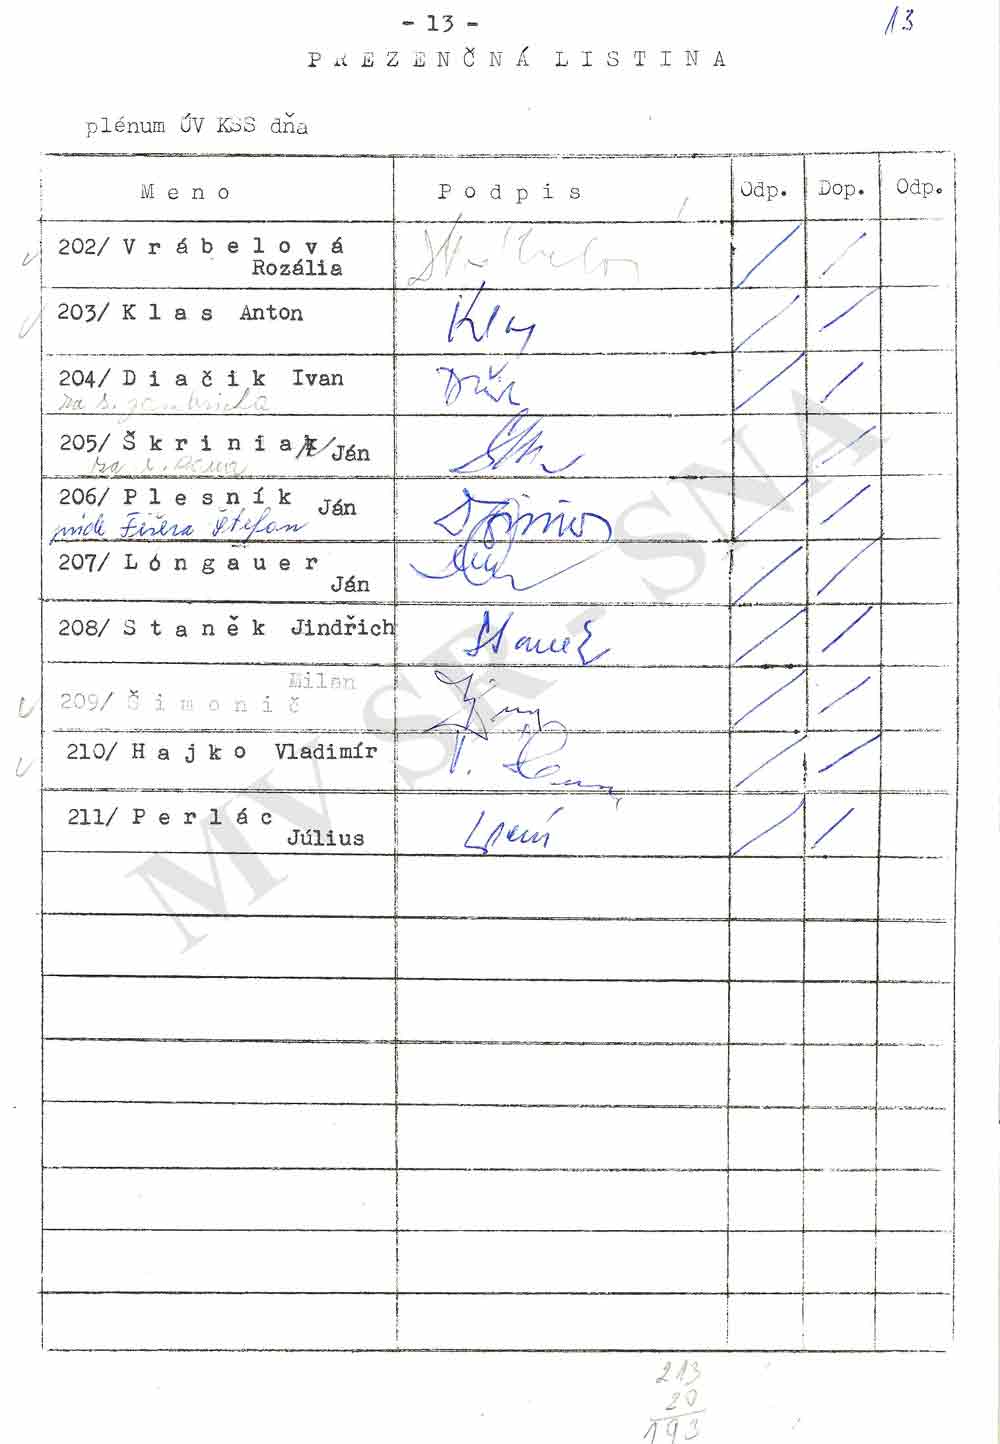 - 13 -
13
P R E Z E N Č N Á L I S T I N A
plénum ÚV KSS dňa
M e n o P o d p i s Odp. Dop. Odp.
202/ V r á b e l o v á
Rozália
203/ K l a s Anton
204/ D i a č i k Ivan
za s.
205/ Š k r i n i a Ján
za s.
206/ P l e s n í k Ján
príde Fišera Štefan
207/ L ó n g a u e r
Ján
208/ S t a n ě k Jindřich
Stanek
Milan
209/ Š i m o n i č
210/ H a j k o Vladimír
211/ P e r l á c
Július
213
20
193
MV SR - SNA